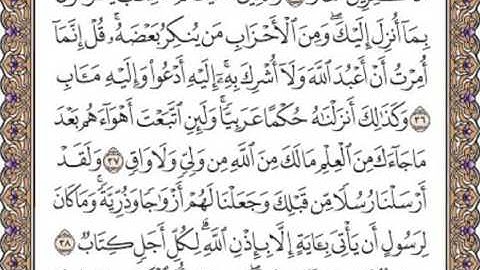 بِمَآ أُنزِلَ إِلَيْكَۖ وَمِنَ ٱلْأَحْزَابِ مَن يُنكِرُ بَعْضَهُۥۚ قُلْ إِنَّمَآ
أُمِرْتُ أَنْ أَعْبُدَ ٱللَّهَ وَلَآ أُشْرِكَ بِهِۦٓۚ إِلَيْهِ أَدْعُوا۟ وَإِلَيْهِ مَـَٔابِ
٣٦ وَكَذَٰلِكَ أَنزَلْنَٰهُ حُكْمًا عَرَبِيًّاۚ وَلَئِنِ ٱتَّبَعْتَ أَهْوَآءَهُم بَعْدَ
مَا جَآءَكَ مِنَ ٱلْعِلْمِ مَا لَكَ مِنَ ٱللَّهِ مِن وَلِىٍّ وَلَا وَاقٍ ٣٧ وَلَقَدْ
أَرْسَلْنَا رُسُلًا مِّن قَبْلِكَ وَجَعَلْنَا لَهُمْ أَزْوَٰجًا وَذُرِّيَّةًۚ وَمَا كَانَ
لِرَسُولٍ أَن يَأْتِىَ بِـَٔايَةٍ إِلَّا بِإِذْنِ ٱللَّهِۗ لِكُلِّ أَجَلٍ كِتَابٌ ٣٨